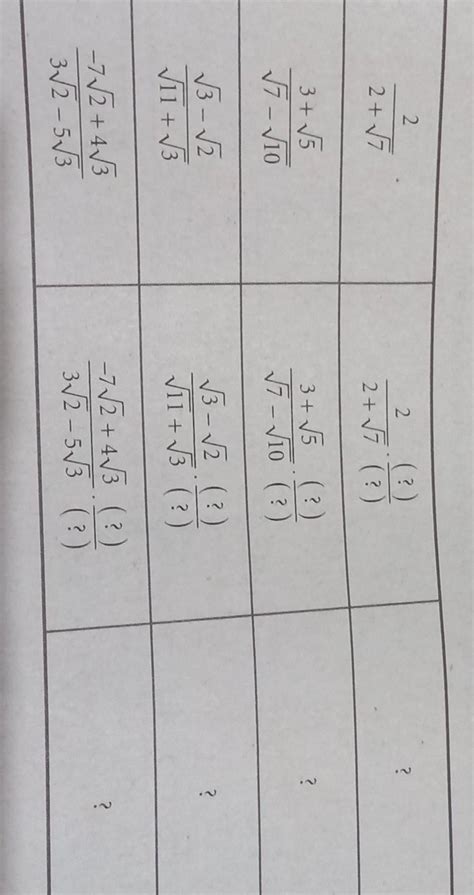 \frac{2}{2+\sqrt{7}} \frac{2}{2+\sqrt{7}} \cdot \frac{(?)}{(?)} ?
\frac{3+\sqrt{5}}{\sqrt{7}-\sqrt{10}} \frac{3+\sqrt{5}}{\sqrt{7}-\sqrt{10}} \cdot \frac{(?)}{(?)} ?
\frac{\sqrt{3}-\sqrt{2}}{\sqrt{11}+\sqrt{3}} \frac{\sqrt{3}-\sqrt{2}}{\sqrt{11}+\sqrt{3}} \cdot \frac{(?)}{(?)} ?
\frac{-7\sqrt{2}+4\sqrt{3}}{3\sqrt{2}-5\sqrt{3}} \frac{-7\sqrt{2}+4\sqrt{3}}{3\sqrt{2}-5\sqrt{3}} \cdot \frac{(?)}{(?)} ?